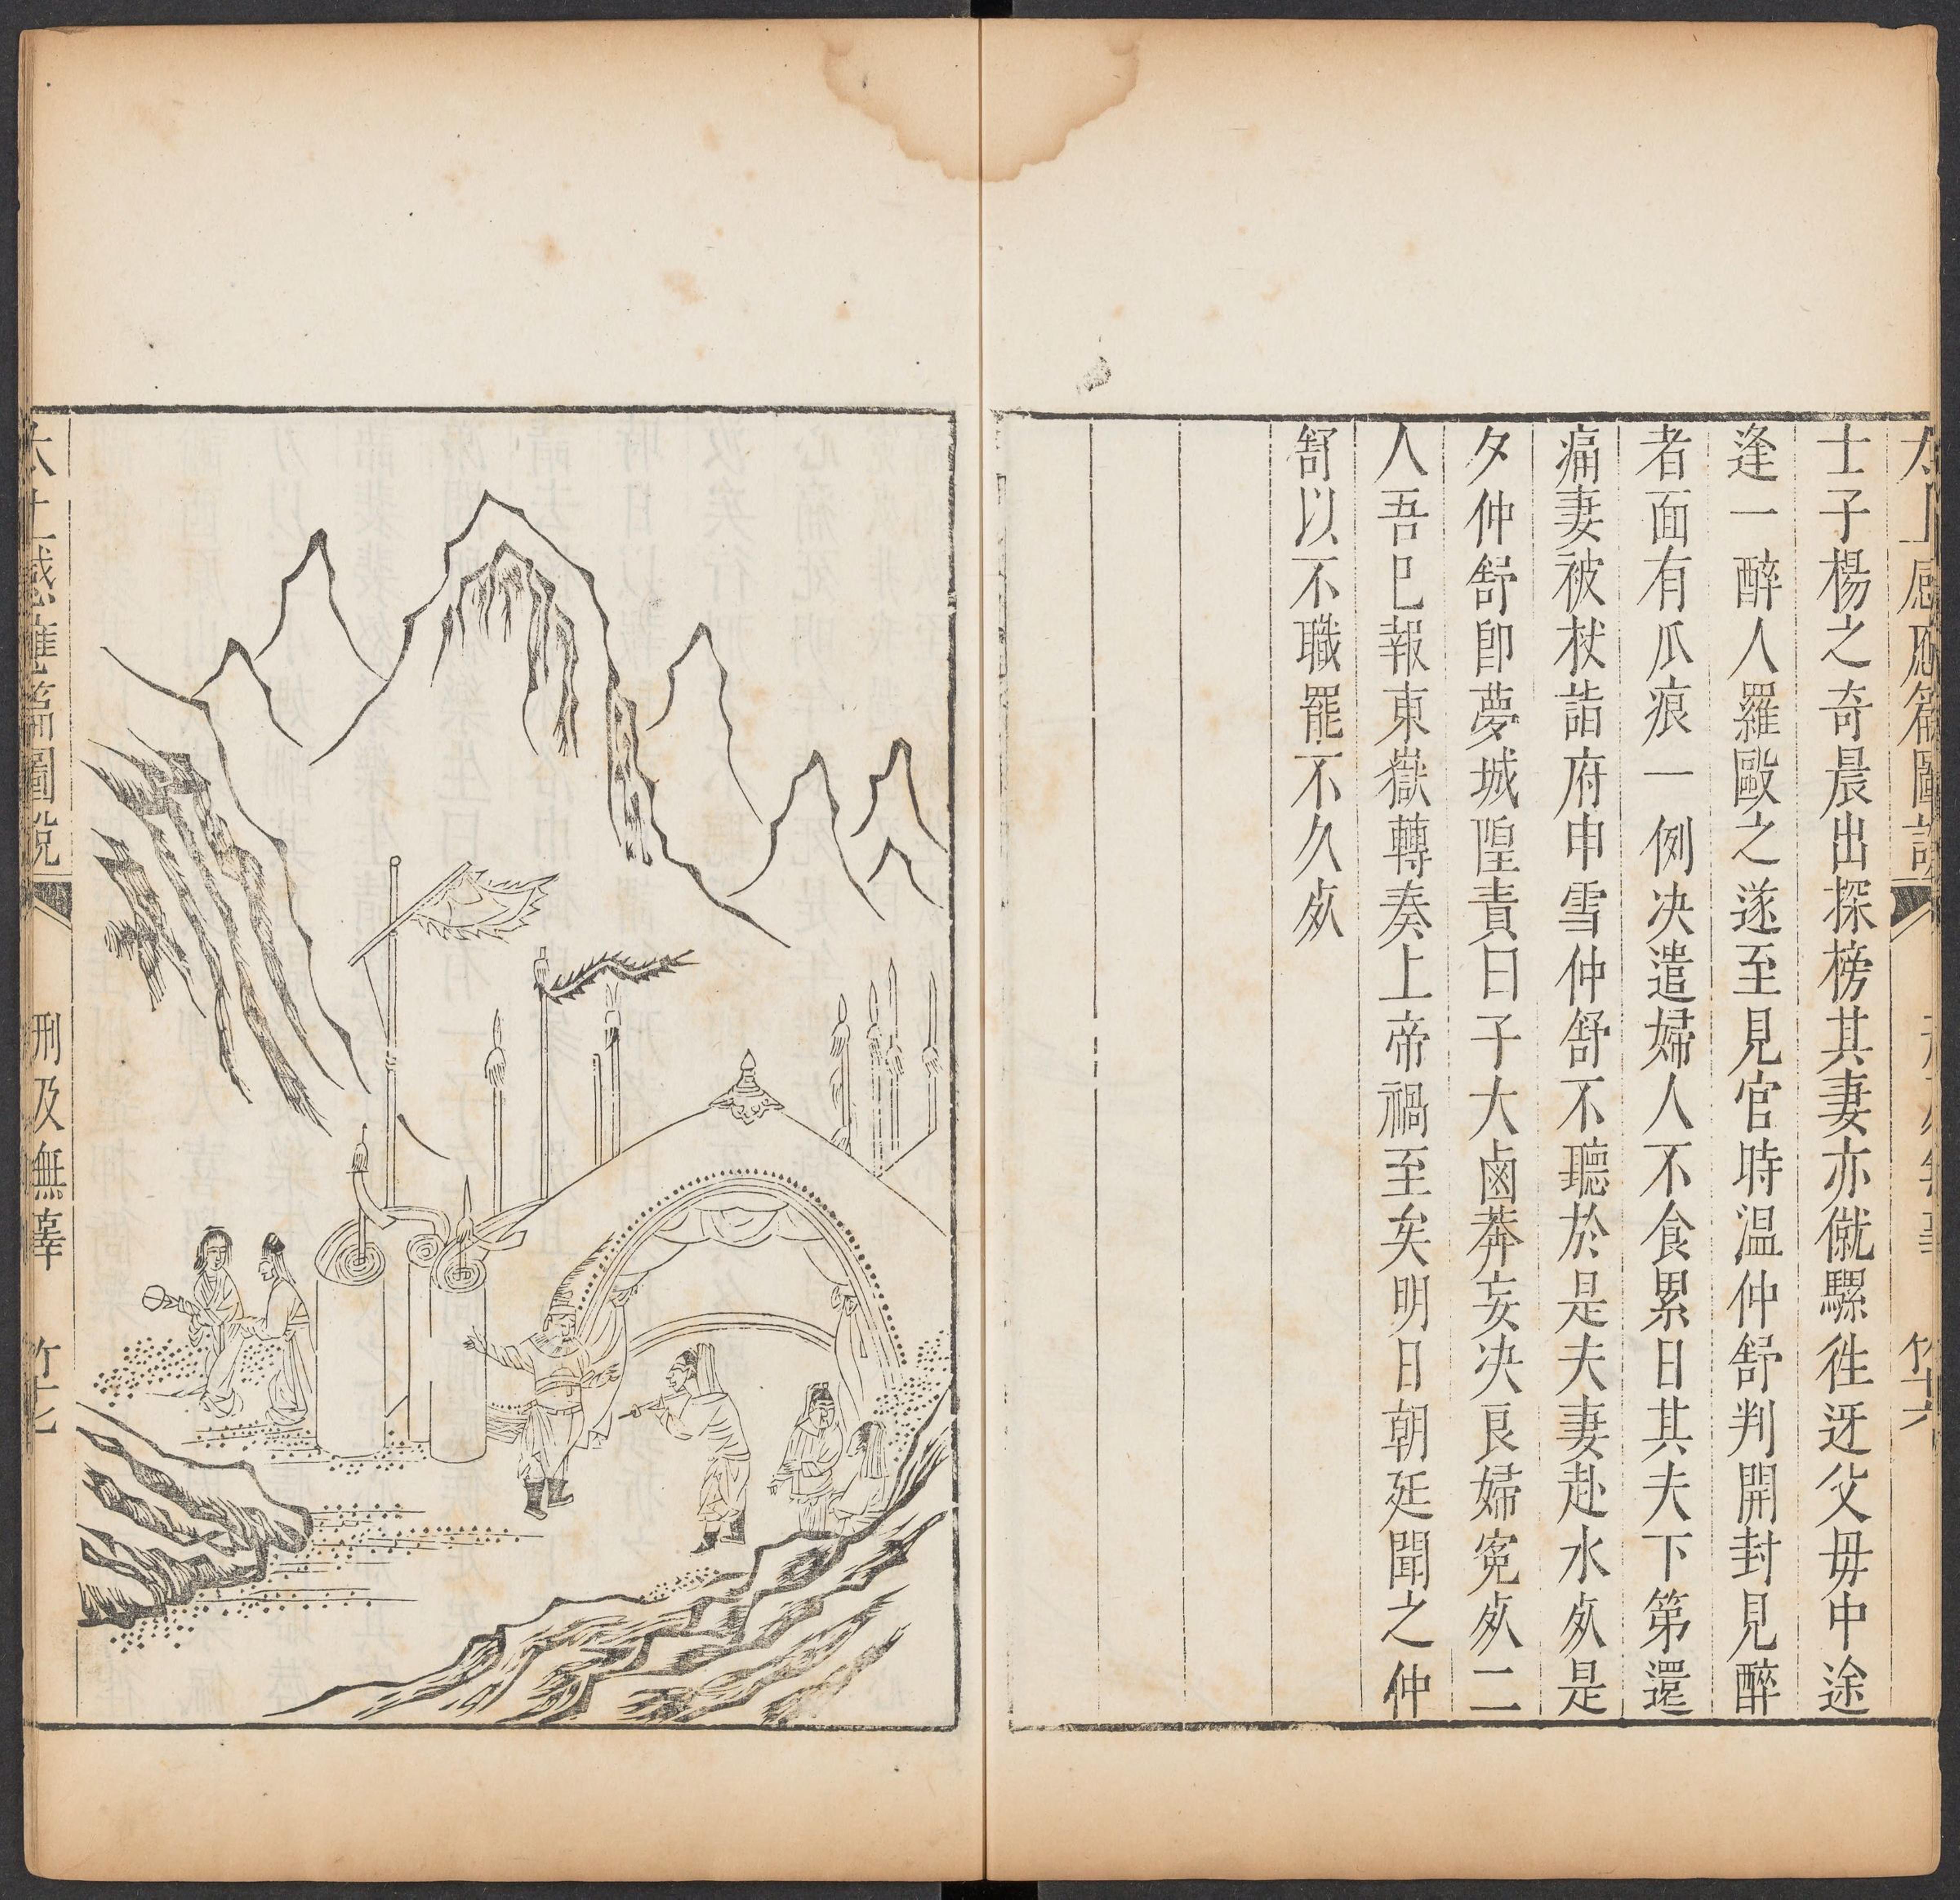 士子楊之奇晨出探榜其妻亦僦騾徃迓父毋中途
逢一醉人羅毆之遂至見官時温仲舒判開封見醉
者面有爪痕一例决遣婦人不食累日其夫下第還
痛妻被杖詣府申雪仲舒不聽於是夫妻赴水死是
夕仲舒卽夢城隍責曰子大鹵莽妄决良婦寃死二
人吾已報東嶽轉奏上帝禍至矣明日朝廷聞之仲
舒以不職罷不久死
太上感應篇圖說
刑及無辜